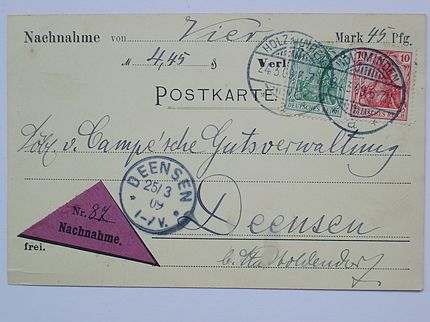 Nachnahme von Vier Mark 45 Pfg.
M 4,45 §
POSTKARTE
HOLZMINDEN
24.3.09
HOLZMINDEN
10 10
DEUTSCHES REICH
v. Campe'sche Gutsverwaltung
DEENSEN
25/3
09
Deensen
Nr. 82
Nachnahme.
frei.
b. Stadtoldendorf